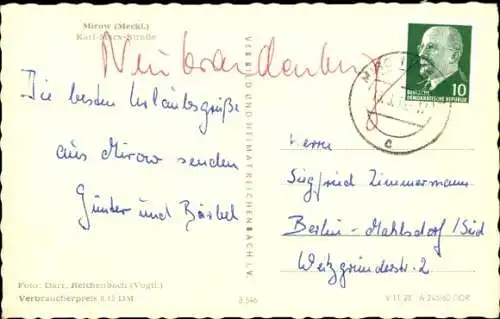 Mirow (Meckl.)
Karl-Marx-Straße
Neubrandenburg
Die besten Urlaubsgrüße
aus Mirow senden
Günter und Bärbel
Foto: Darr, Reichenbach (Vogtl.)
Verbraucherpreis 0,12 DM
VERBILD UND HEIMAT REICHENBACH i. V.
3 546
10
DEUTSCHE
DEMOKRATISCHE REPUBLIK
c
Herrn
Siegfried Zimmermann
Berlin-Mahlsdorf/Süd
Weitzgründerstr. 2
V 11 28 A 245/60 DDR